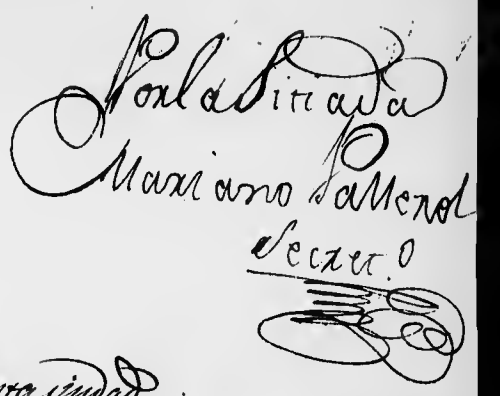 Por la Sitiada
Mariano Pallerol
Secret.o
ciudad